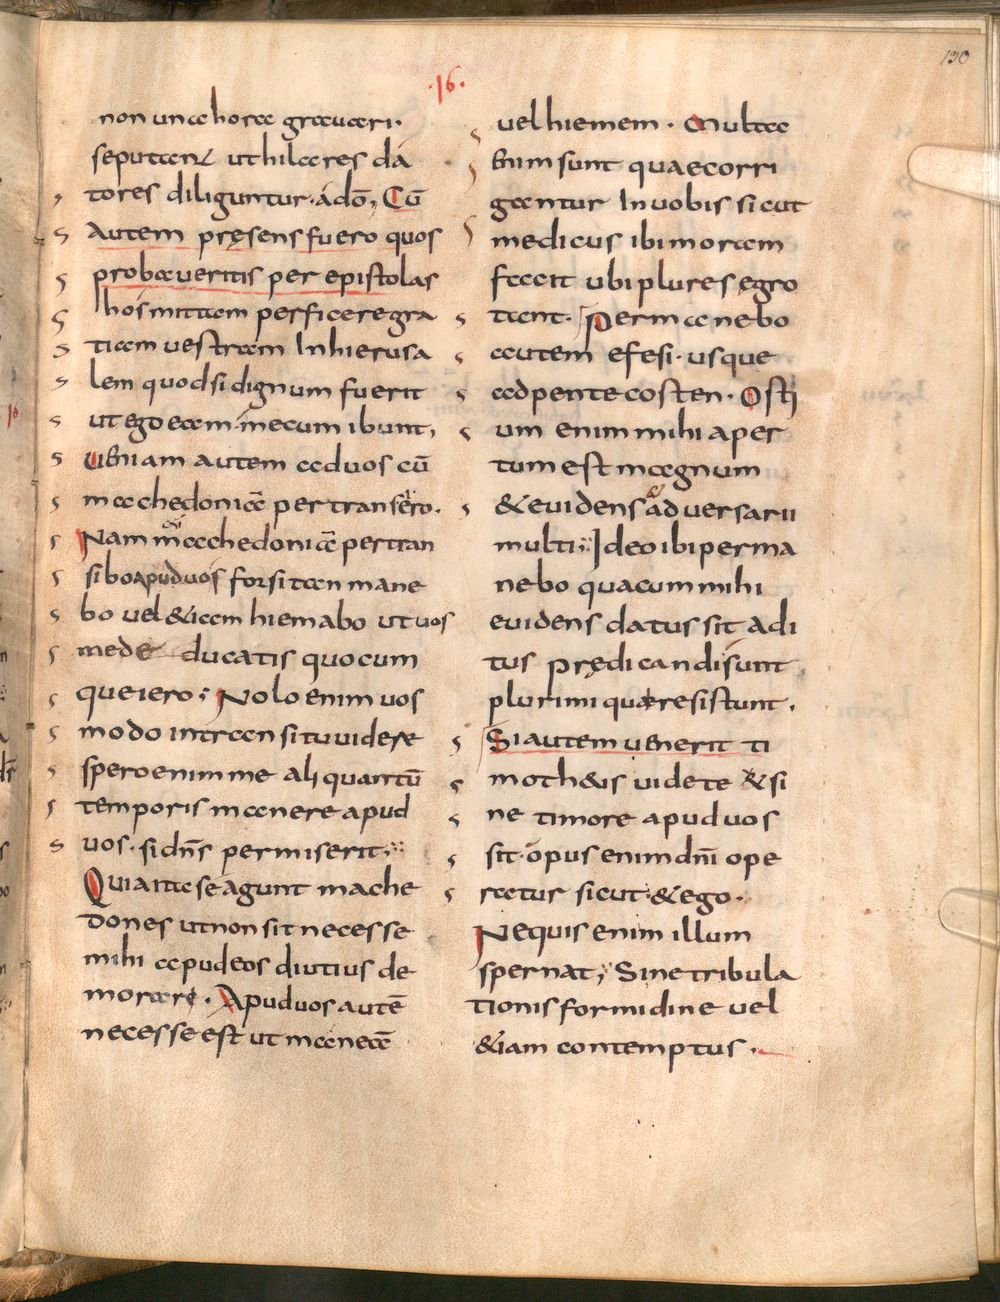 130
·16·
non una hora grauari·
se putant ut hilares da
tores diliguntur· a dō, Cū
Autem pręsens fuero quos
probaueritis per epistolas
hos mittam perficere gra
tiam uestram In hierusa
lem quod si dignum fuerit
ut ego eam mecum ibunt,
Ueniam autem ad uos cū
machedoniā pertransero·
Nam machedoniā pertran
sibo apud uos forsitan mane
bo uel &iam hiemabo ut uos
me de ducatis quocum
que iero; Nolo enim uos
modo in transitu uidere
spero enim me aliquantū
temporis manere apud
uos· si dn̄s permiserit;
Quia ita se agunt mache
dones ut non sit necesse
mihi apud eos diutius de
morare· Apud uos autē
necesse est ut maneā
16
uel hiemem· Multa
enim sunt quae corri
gantur In uobis sicut
medicus ibi moram
facit ubi plures ęgro
tant· Permanebo
autem efesi· usque
ad pentecosten· Osti
um enim mihi aper
tum est magnum
& euidens & aduersarii
multi; Ideo ibi perma
nebo quacum mihi
euidens datus sit adi
tus prędicandi sunt
plurimi quae resistunt·
Si autem uenerit ti
moth&is uidete & si
ne timore apud uos
sit· opus enim dn̄i ope
ratur sicut· & ego·
Nequis enim illum
spernat; Sine tribula
tionis formidine uel
&iam contemptus·